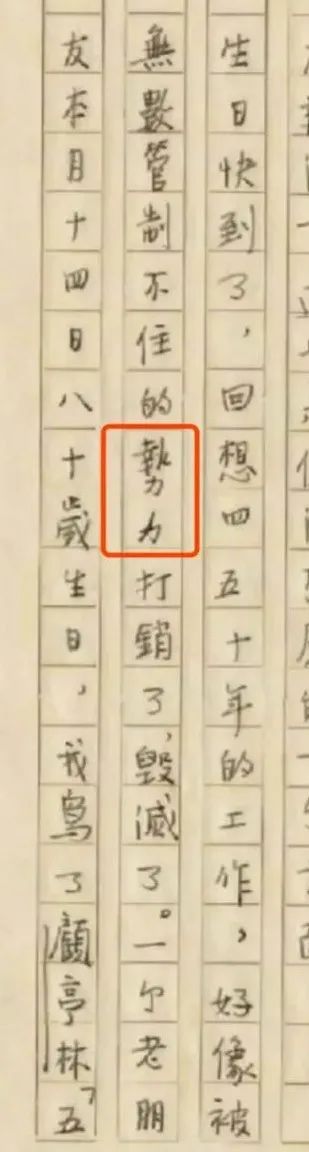 生日快到了，回想四五十年的工作，好像被
無數管制不住的勢力打銷了，毀滅了。一个老朋
友本月十四日八十歲生日，我寫了顧亭林五